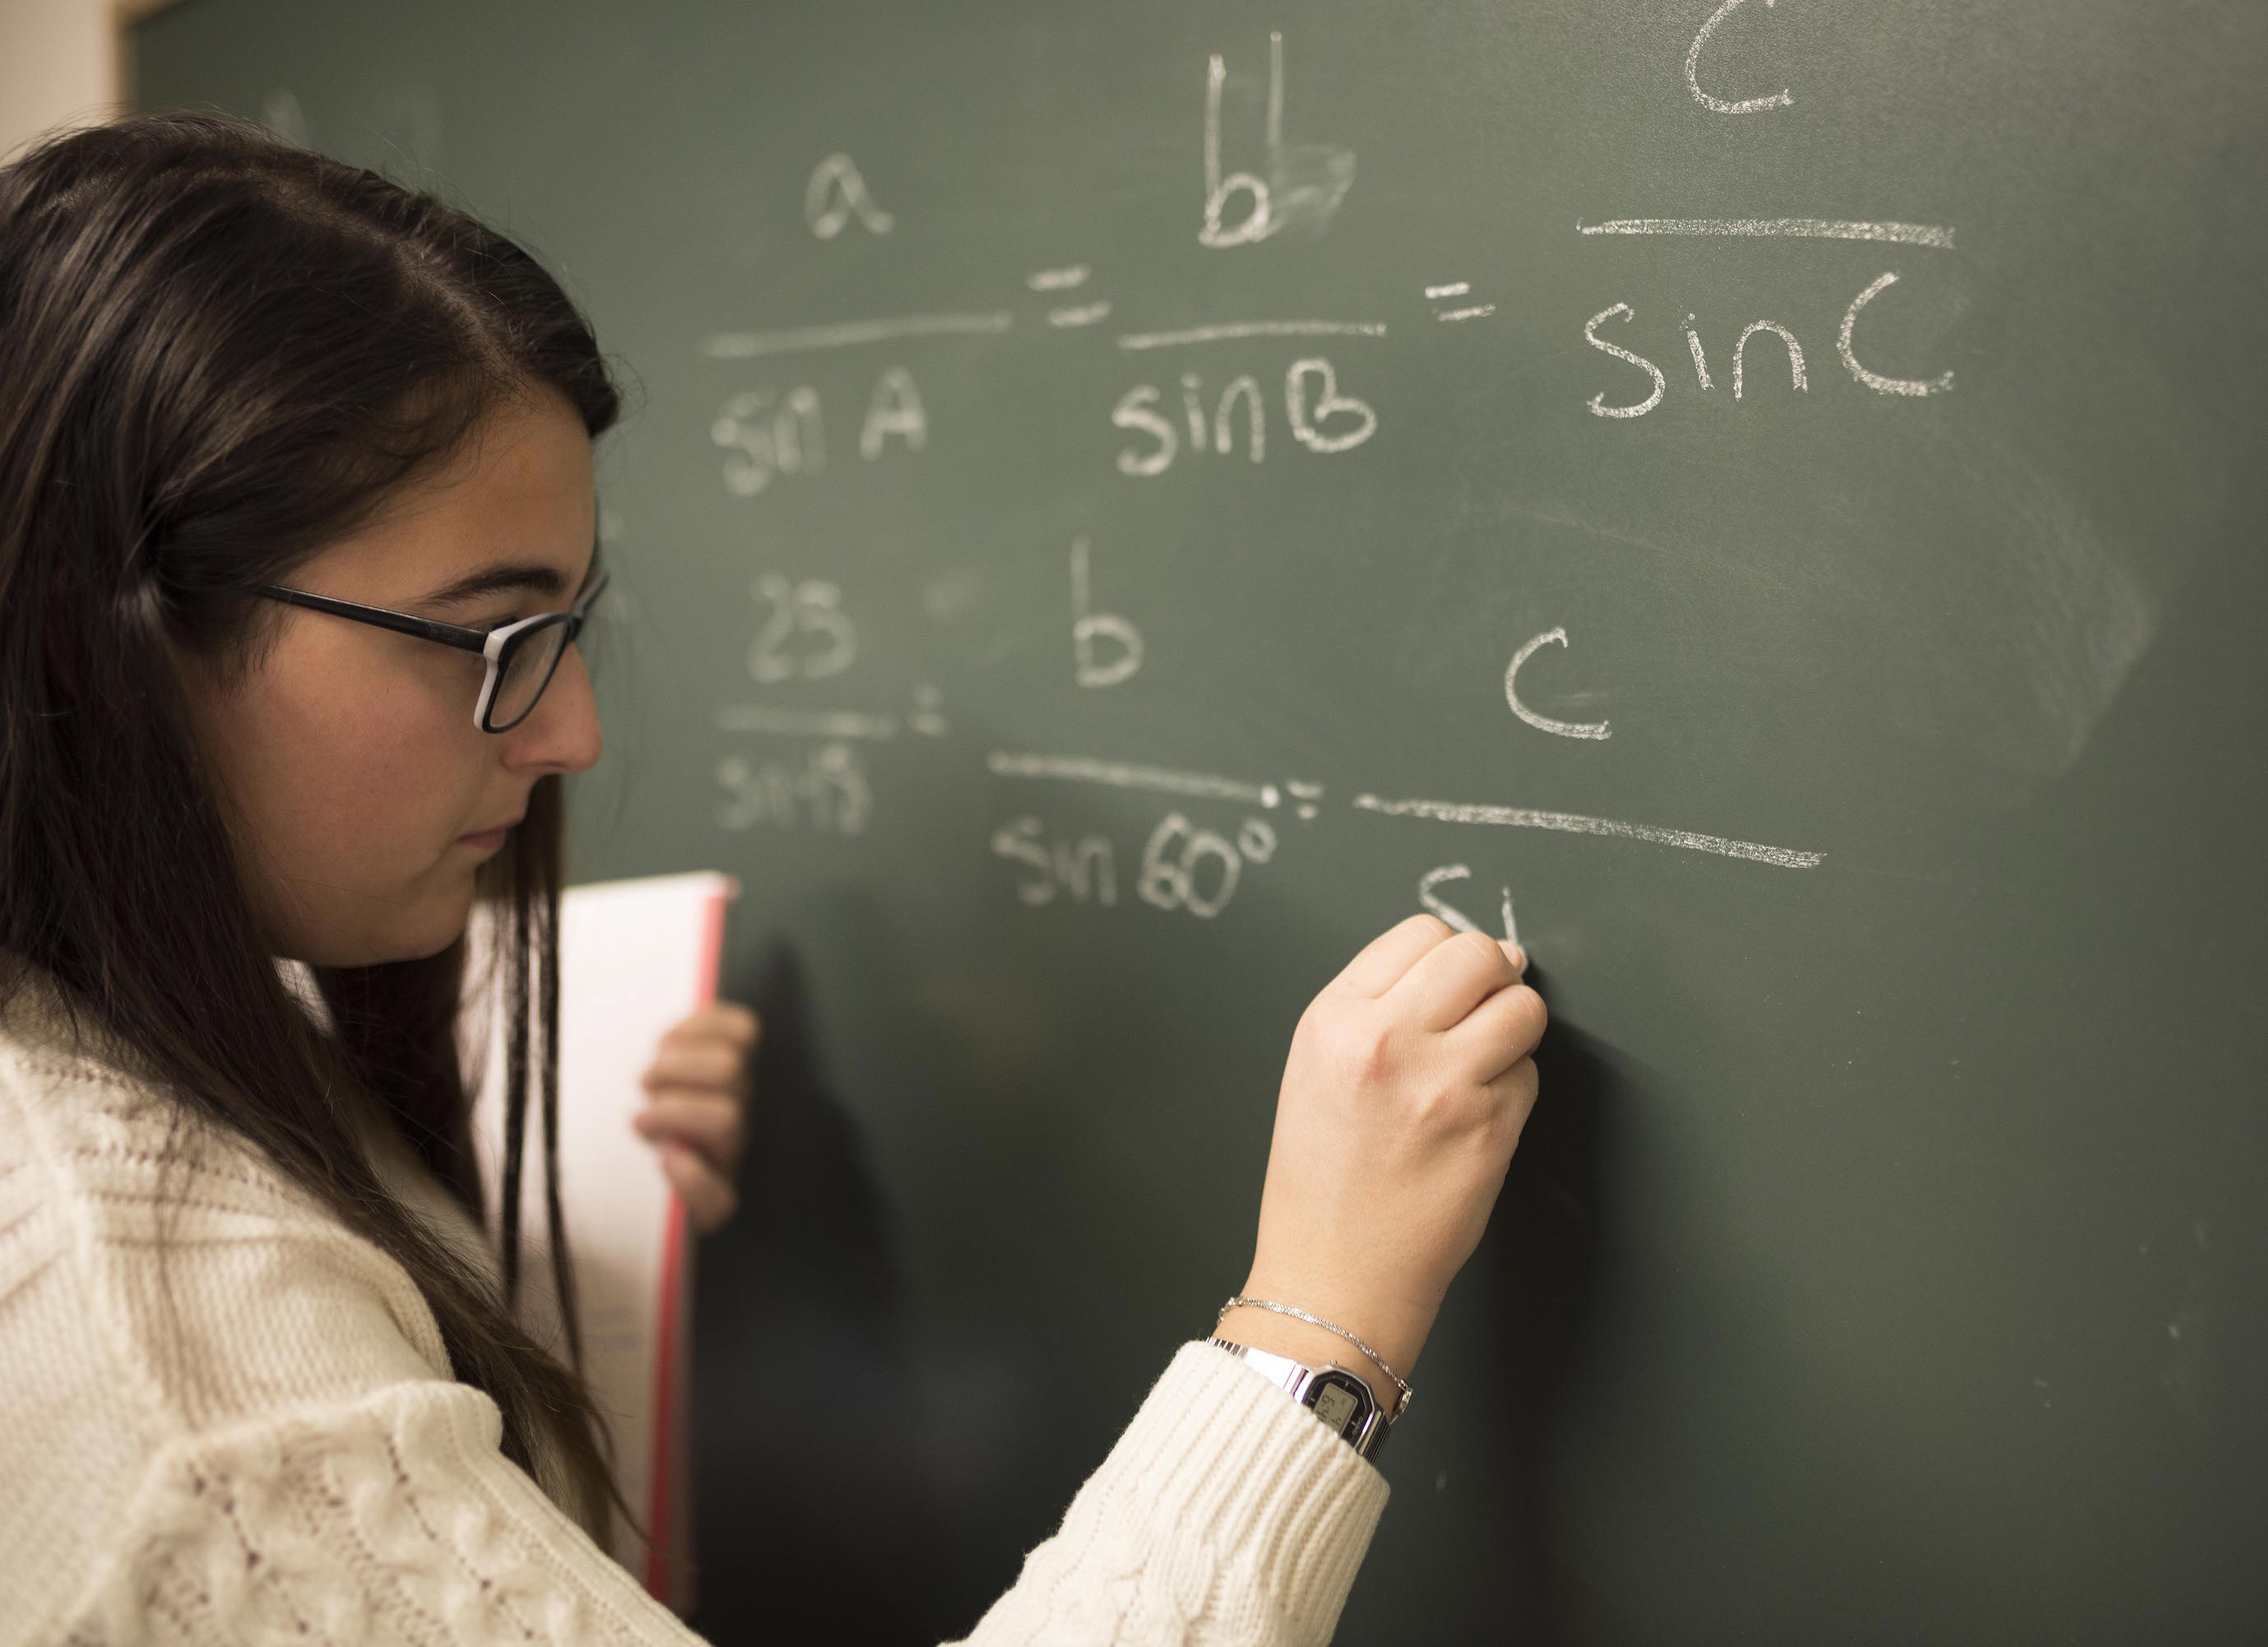 a / sin A = b / sin B = C / sin C
25 / sin 45 = b / sin 60° = C / si